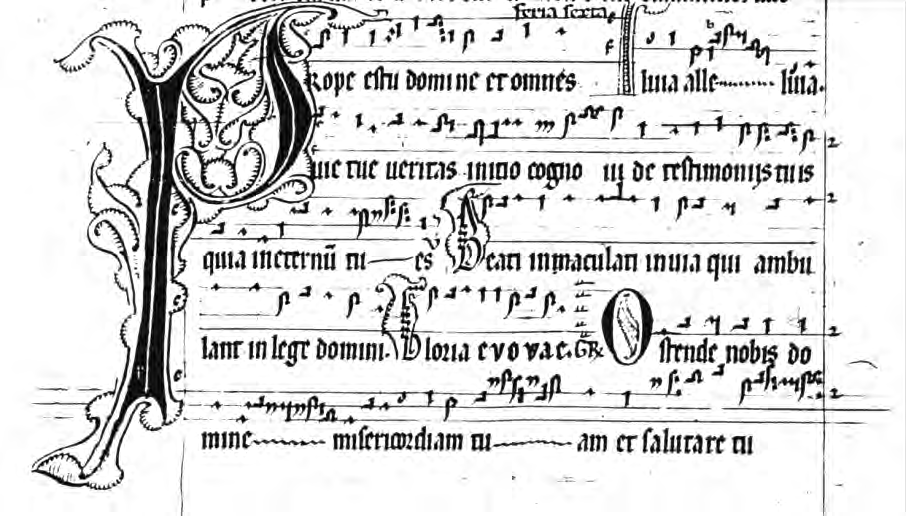 feria sexta
Prope es tu domine et omnes lluia alle lluia.
uie tue ueritas initio cogno ui de testimonijs tuis
quia in eternū tu es Beati inmaculati in uia qui ambu
lant in lege domini. Gloria e v o v a e. GR Ostende nobis do
mine misericordiam tu am et salutare tu